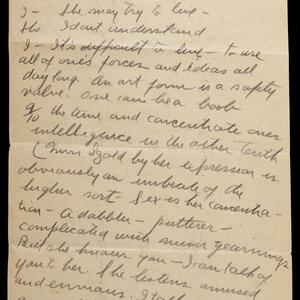 I - She may try to live -
She I don't understand
I - It's difficult to live - to use
all of one's forces and ideas all
day long. An art form is a safety
valve. One can be a boob
9/10 the time and concentrate ones
intelligence in the other tenth
( by her expression is
obviously an of the
higher sort - Sex is her concentra-
tion - A dabbler - putterer -
complicated with minor yearnings
But she knows you - I can talk of
you to her. She listens amused
and envious. I talk